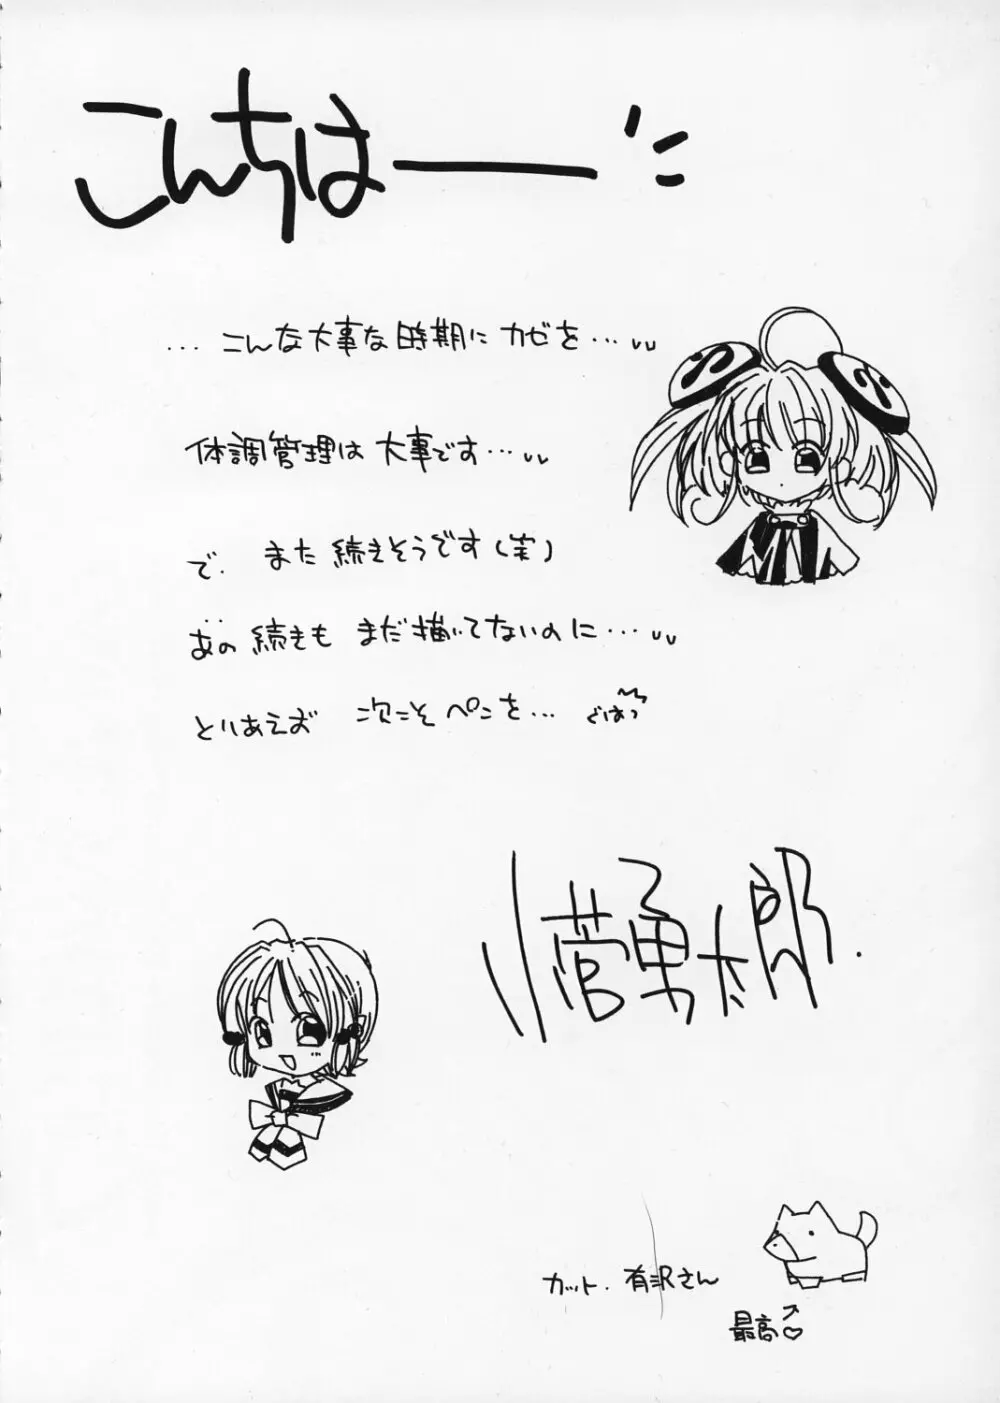 こんちはー
…こんな大事な時期にカゼを…
体調管理は大事です…
で.また続きそうです(笑)
あの続きもまだ描いてないのに…
とりあえず 次こそペンを… ぐはっ
小菅勇太郎.
カット.有沢さん
最高♡